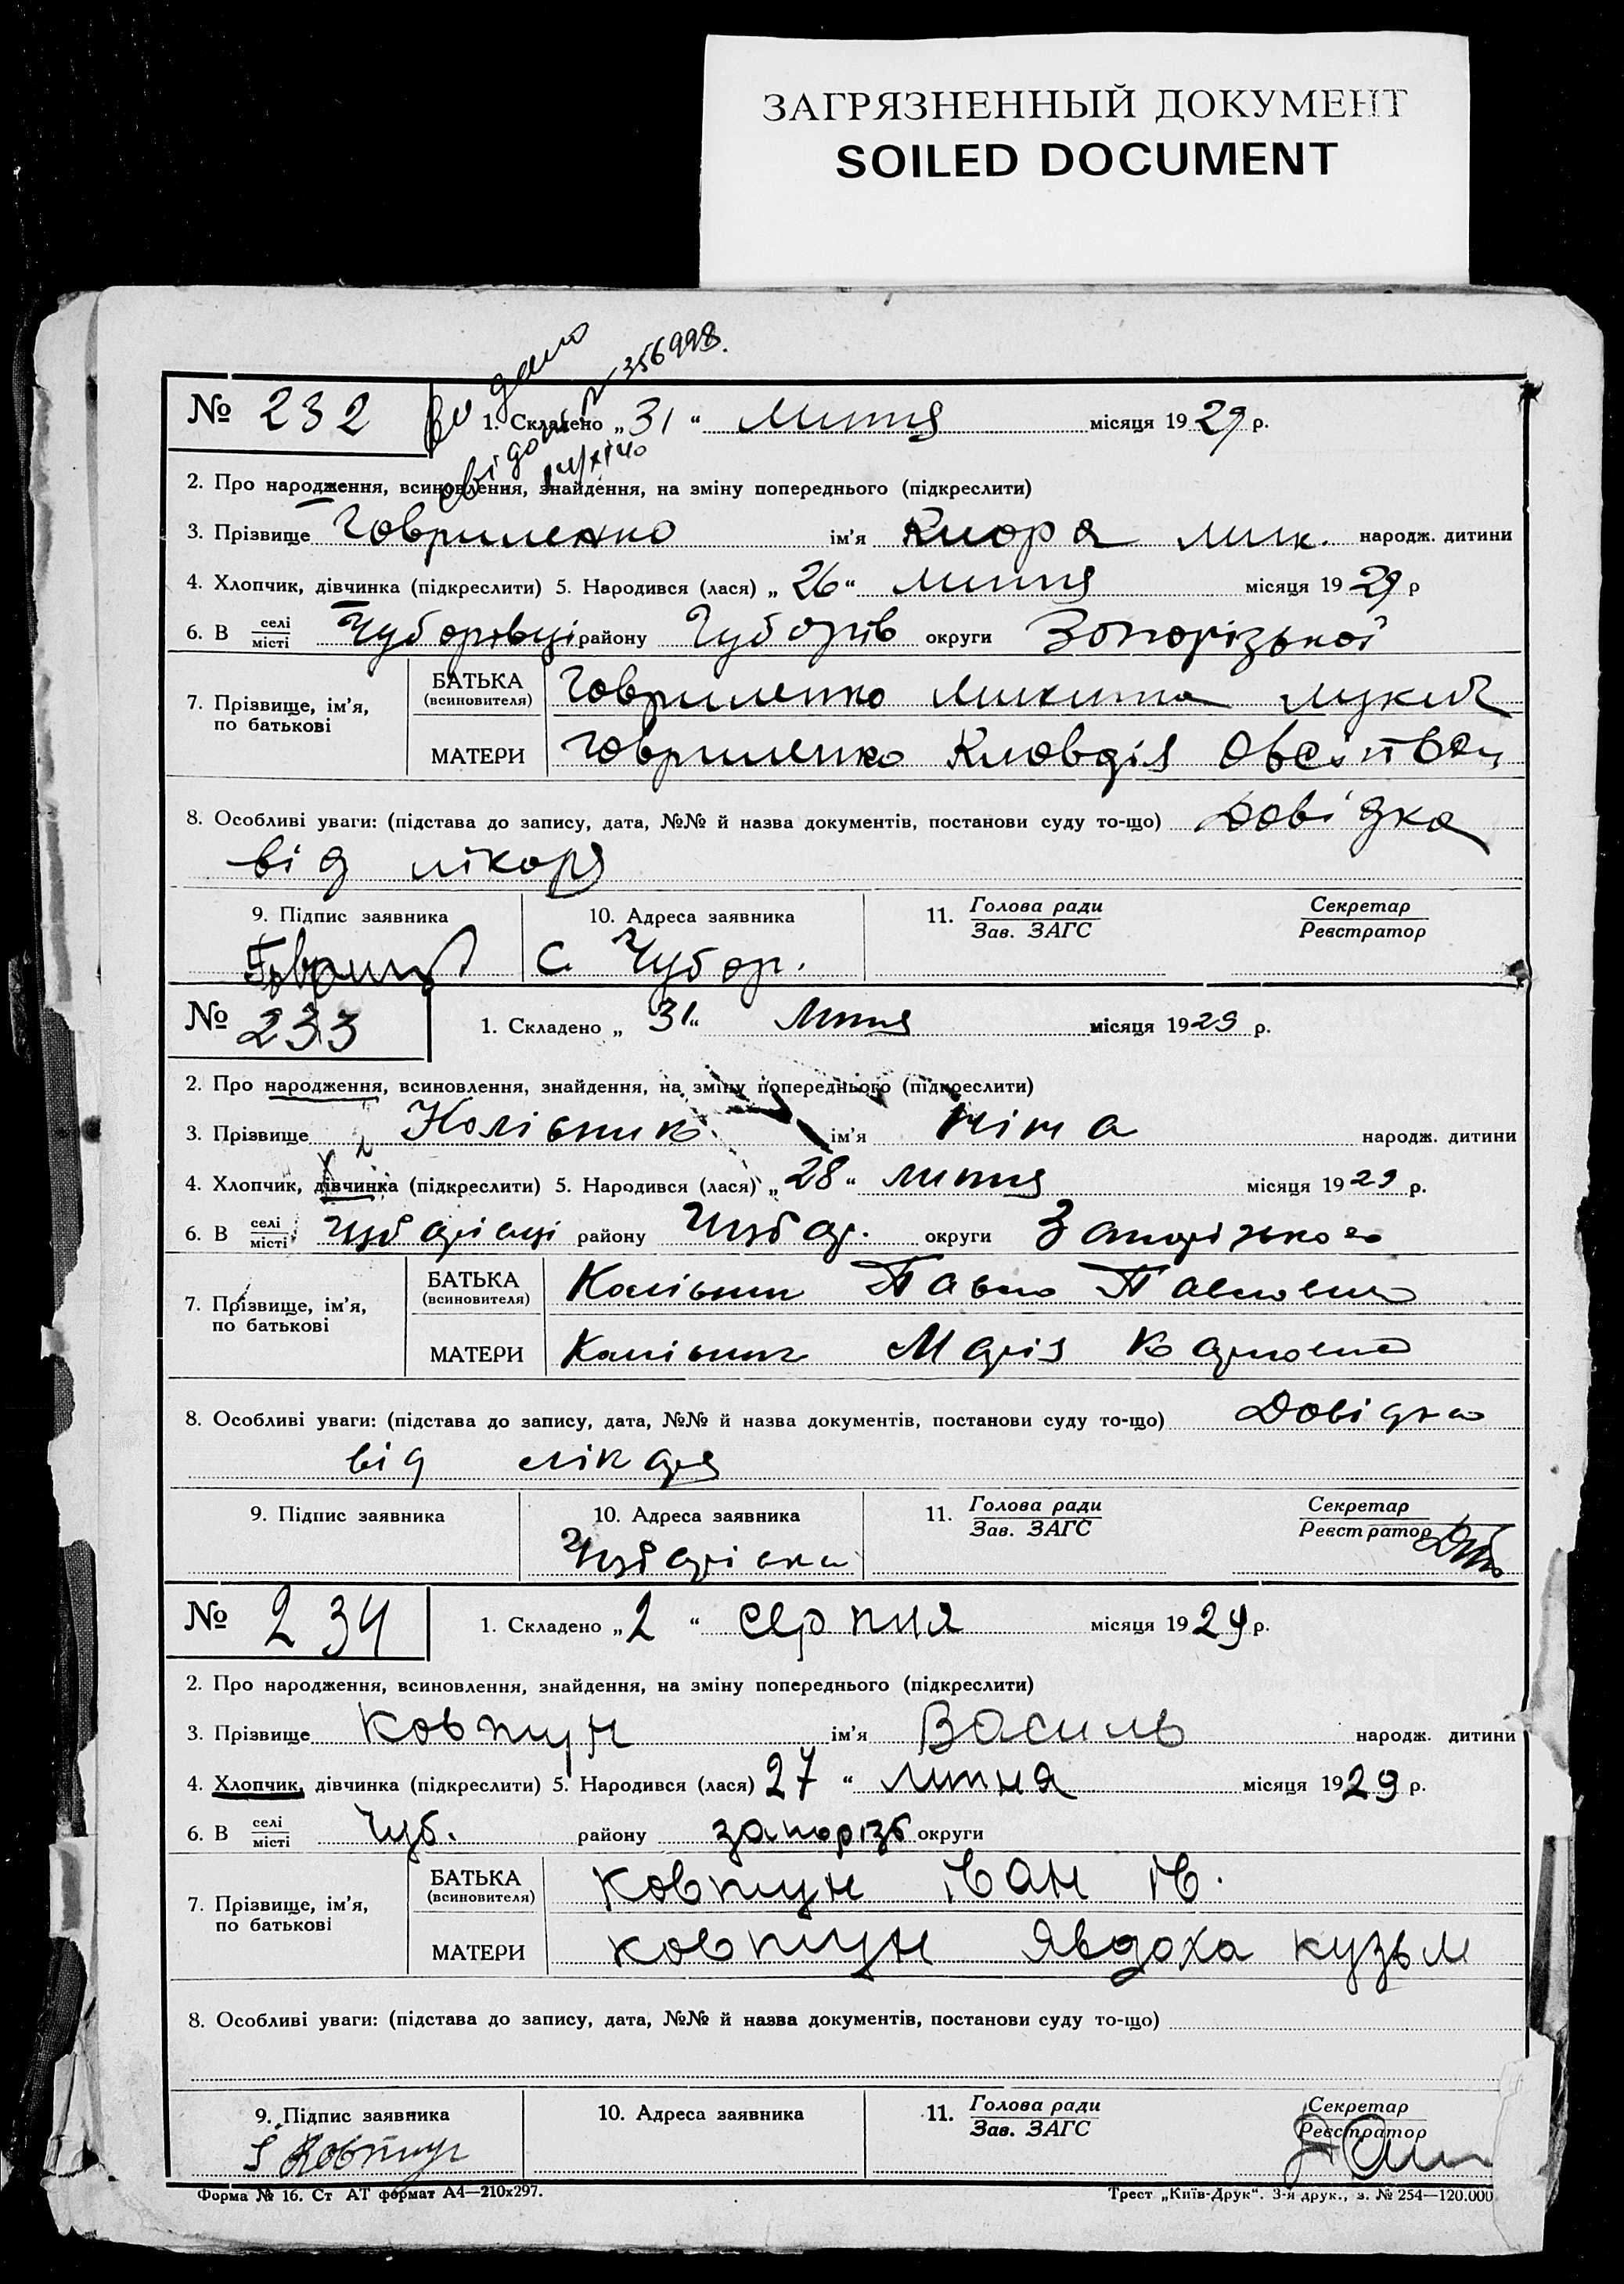 ЗАГРЯЗНЕННЫЙ ДОКУМЕНТ
SOILED DOCUMENT
№ 356998.
№ 232 1. Складено „31“ Липня місяця 1929 р.
2. Про народження, всиновлення, знайдення, на зміну попереднього (підкреслити)
3. Прізвище Говриленко ім'я Клора Мик. народж. дитини
4. Хлопчик, дівчинка (підкреслити) 5. Народився (лася) „26“ липня місяця 1929 р
6. В селі/місті Чуборівці району Чуборів округи Зопорізької
7. Прізвище, ім'я, по батькові
БАТЬКА (всиновителя) Говриленко Микита Лукич
МАТЕРИ Говриленко Кловдія
8. Особливі уваги: (підстава до запису, дата, №№ й назва документів, постанови суду то-що) Довідка
від лікоря
9. Підпис заявника 10. Адреса заявника 11. Голова ради/Зав. ЗАГС Секретар/Реєстратор
с. Чубор.
№ 233 1. Складено „31“ Липня місяця 1929 р.
2. Про народження, всиновлення, знайдення, на зміну попереднього (підкреслити)
3. Прізвище ім'я Ніна народж. дитини
4. Хлопчик, дівчинка (підкреслити) 5. Народився (лася) „28“ липня місяця 1929 р.
6. В селі/місті Чубарівці району Чубар. округи
7. Прізвище, ім'я, по батькові
БАТЬКА (всиновителя) Павло Павлович
МАТЕРИ Марія Карповна
8. Особливі уваги: (підстава до запису, дата, №№ й назва документів, постанови суду то-що) Довідка
від лікаря
9. Підпис заявника 10. Адреса заявника 11. Голова ради/Зав. ЗАГС Секретар/Реєстратор
Чубарівка
№ 234 1. Складено „2“ серпня місяця 1929 р.
2. Про народження, всиновлення, знайдення, на зміну попереднього (підкреслити)
3. Прізвище Ковтун ім'я Василь народж. дитини
4. Хлопчик, дівчинка (підкреслити) 5. Народився (лася) 27“ липня місяця 1929 р.
6. В селі/місті Чуб. району запорізь округи
7. Прізвище, ім'я, по батькові
БАТЬКА (всиновителя) Ковтун Іван Ів.
МАТЕРИ Ковтун Явдоха Кузьм
8. Особливі уваги: (підстава до запису, дата, №№ й назва документів, постанови суду то-що)
9. Підпис заявника 10. Адреса заявника 11. Голова ради/Зав. ЗАГС Секретар/Реєстратор
І Ковтун
Форма № 16. Ст АТ формат А4—210х297. Трест „Київ-Друк“. 3-я друк., з. № 254—120.000